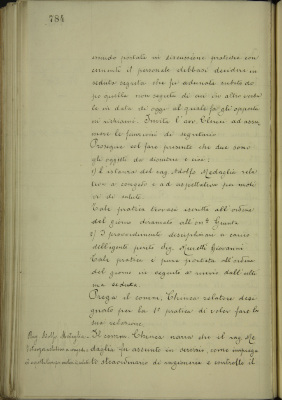 784
essendo portate in discussione pratiche con-
cernenti il personale debbasi decidere in
seduta segreta che fu adunata subito do-
po quella non segreta di cui in altro verba-
le in data di oggi al quale fa gli opportu-
ni richiami. Invita l'avv. Clerici ad assu-
mere le funzioni di segretario.
Prosegue col fare presente che due sono
gli oggetti da discutere e cioè:
1) l'istanza del rag. Adolfo Medaglia rela-
tiva a congedo e ad aspettativa per moti-
vi di salute.
Tale pratica trovasi iscritta all'ordine
del giorno diramato alla On. Giunta
2) I provvedimenti disciplinari a carico
dell'agente Giovanni
Tale pratica è pure portata all'ordine
del giorno in seguito a rinvio dall'ulti-
ma seduta.
Prega il comm. relatore desi-
gnato per la 1ª pratica di voler fare la
sua relazione.
Rag. Adolfo Medaglia
Il comm. narra che il rag. Me-
daglia fu assunto in servizio come impiega-
to straordinario di ragioneria e controllo il